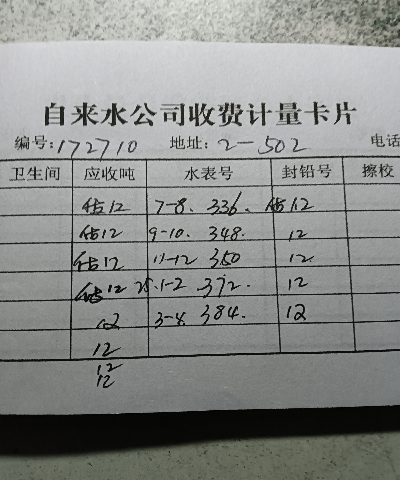 自来水公司收费计量卡片
编号:172710 地址:2-502 电话
卫生间 应收吨 水表号 封铅号 擦校
估12 7-8. 336. 估12
估12 9-10. 348. 12
估12 11-12 360 12.
估12 25.1-2 372. 12
12 3-4. 384. 12
12
12
12